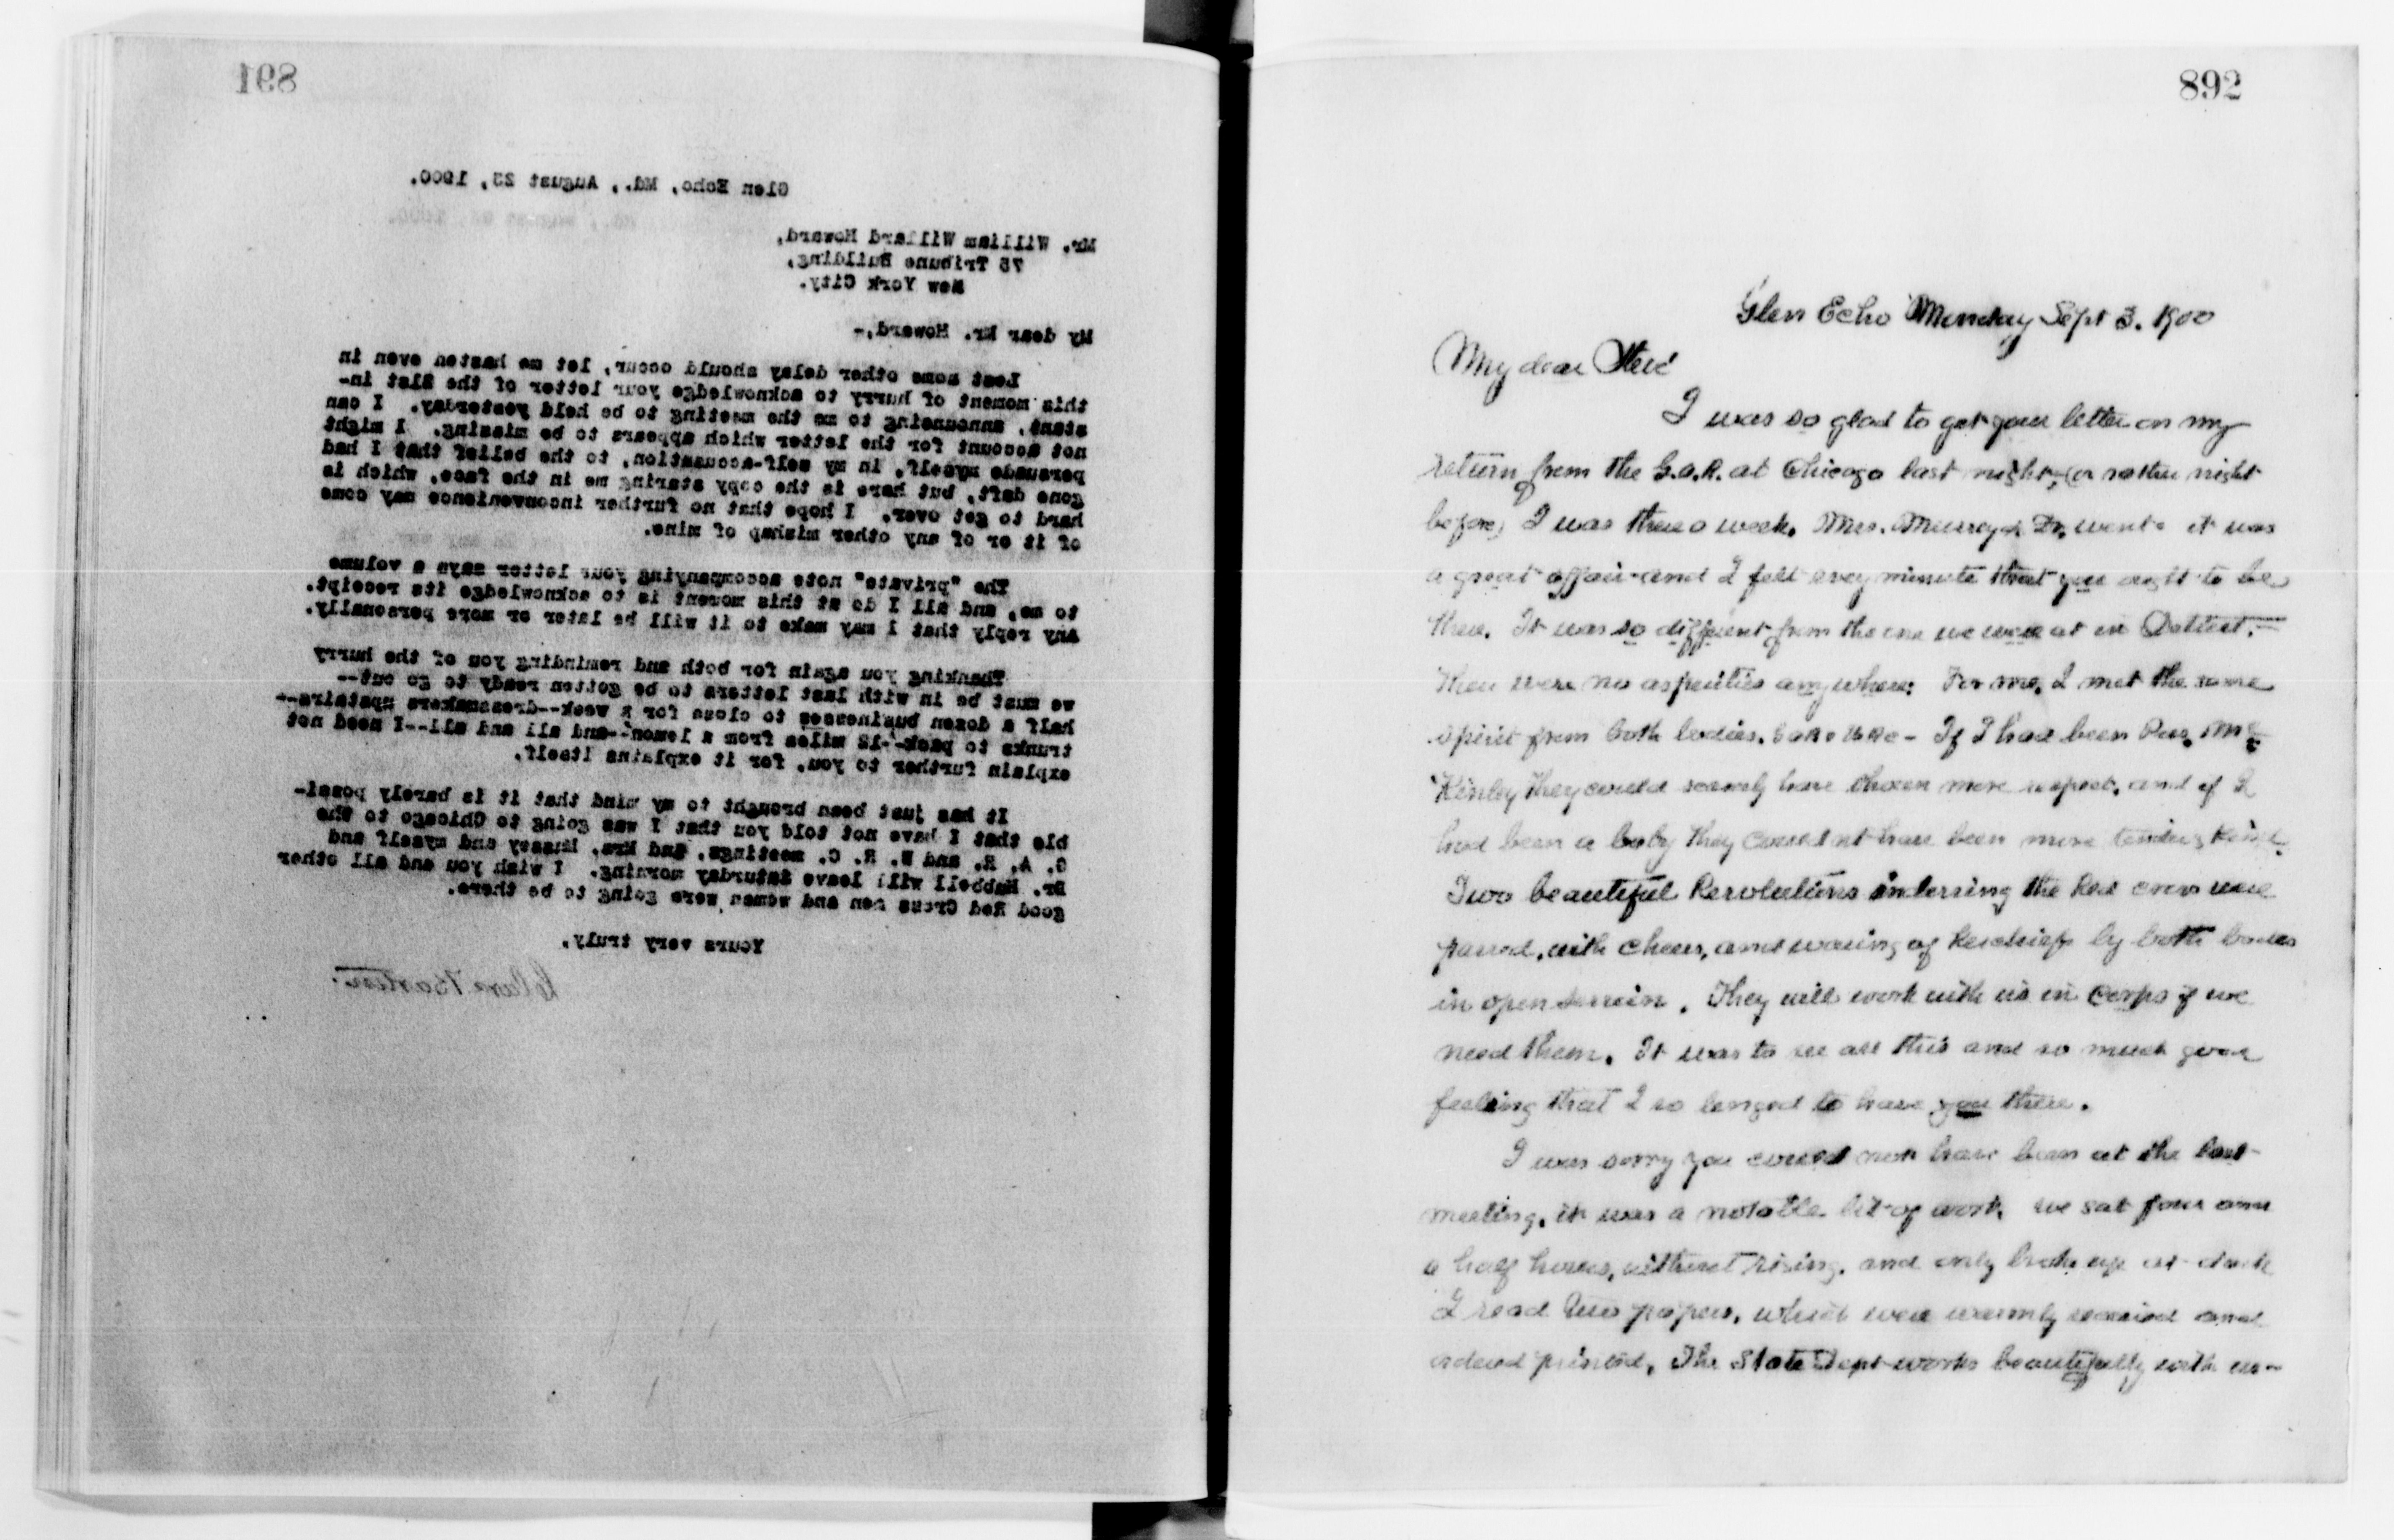 891
Glen Echo, Md., August 23, 1900.
Mr. William Willard Howard,
75 Tribune Building,
New York City.
My dear Mr. Howard,-
Lest some other delay should occur, let me hasten even in
this moment of hurry to acknowledge your letter of the 21st in-
stant, announcing to me the meeting to be held yesterday. I can
not account for the letter which appears to be missing. I might
persuade myself, in my self-accusation, to the belief that I had
gone daft, but here is the copy staring me in the face, which is
hard to get over. I hope that no further inconvenience may come
of it or of any other mishap of mine.
The "private" note accompanying your letter says a volume
to me, and all I do at this moment is to acknowledge its receipt.
Any reply that I may make to it will be later or more personally.
Thanking you again for both and reminding you of the hurry
we must be in with last letters to be gotten ready to go out--
half a dozen businesses to close for a week--dressmakers upstairs--
trunks to pack--12 miles from a lemon--and all and all--I need not
explain further to you, for it explains itself.
It has just been brought to my mind that it is barely possi-
ble that I have not told you that I was going to Chicago to the
G. A. R. and W. R. C. meetings, and Mrs. Mussey and myself and
Dr. Hubbell will leave Saturday morning. I wish you and all other
good Red Cross men and women were going to be there.
Yours very truly,
Clara Barton.
892
Glen Echo Monday Sept 3. 1900
My dear Steve
I was so glad to get your letter on my
return from the G.A.R. at Chicago last night, (or rather night
before) I was there a week. Mrs. Mussey & Dr. went- it was
a great affair and I felt every minute that you ought to be
there. It was so different from the one we were at in Detroit.-
There were no asperities anywhere. For me, I met the same
spirit from both bodies. G A R & W R C - If I had been Pres. Mc
Kinley they could scarcely have shown more respect, and if I
had been a baby they could not have been more tender & kind.
Two beautiful Resolutions indorsing the Red Cross were
passed, with cheers, and waving of kerchiefs by both bodies
in open session. They will work with us in Corps if we
need them. It was to see all this and so much good
feeling that I so longed to have you there.
I was sorry you could not have been at the last
meeting, it was a notable bit of work, we sat four and
a half hours, without rising, and only broke up at dark
I read two papers, which were warmly received and
ordered printed. The State Dept works beautifully with us-